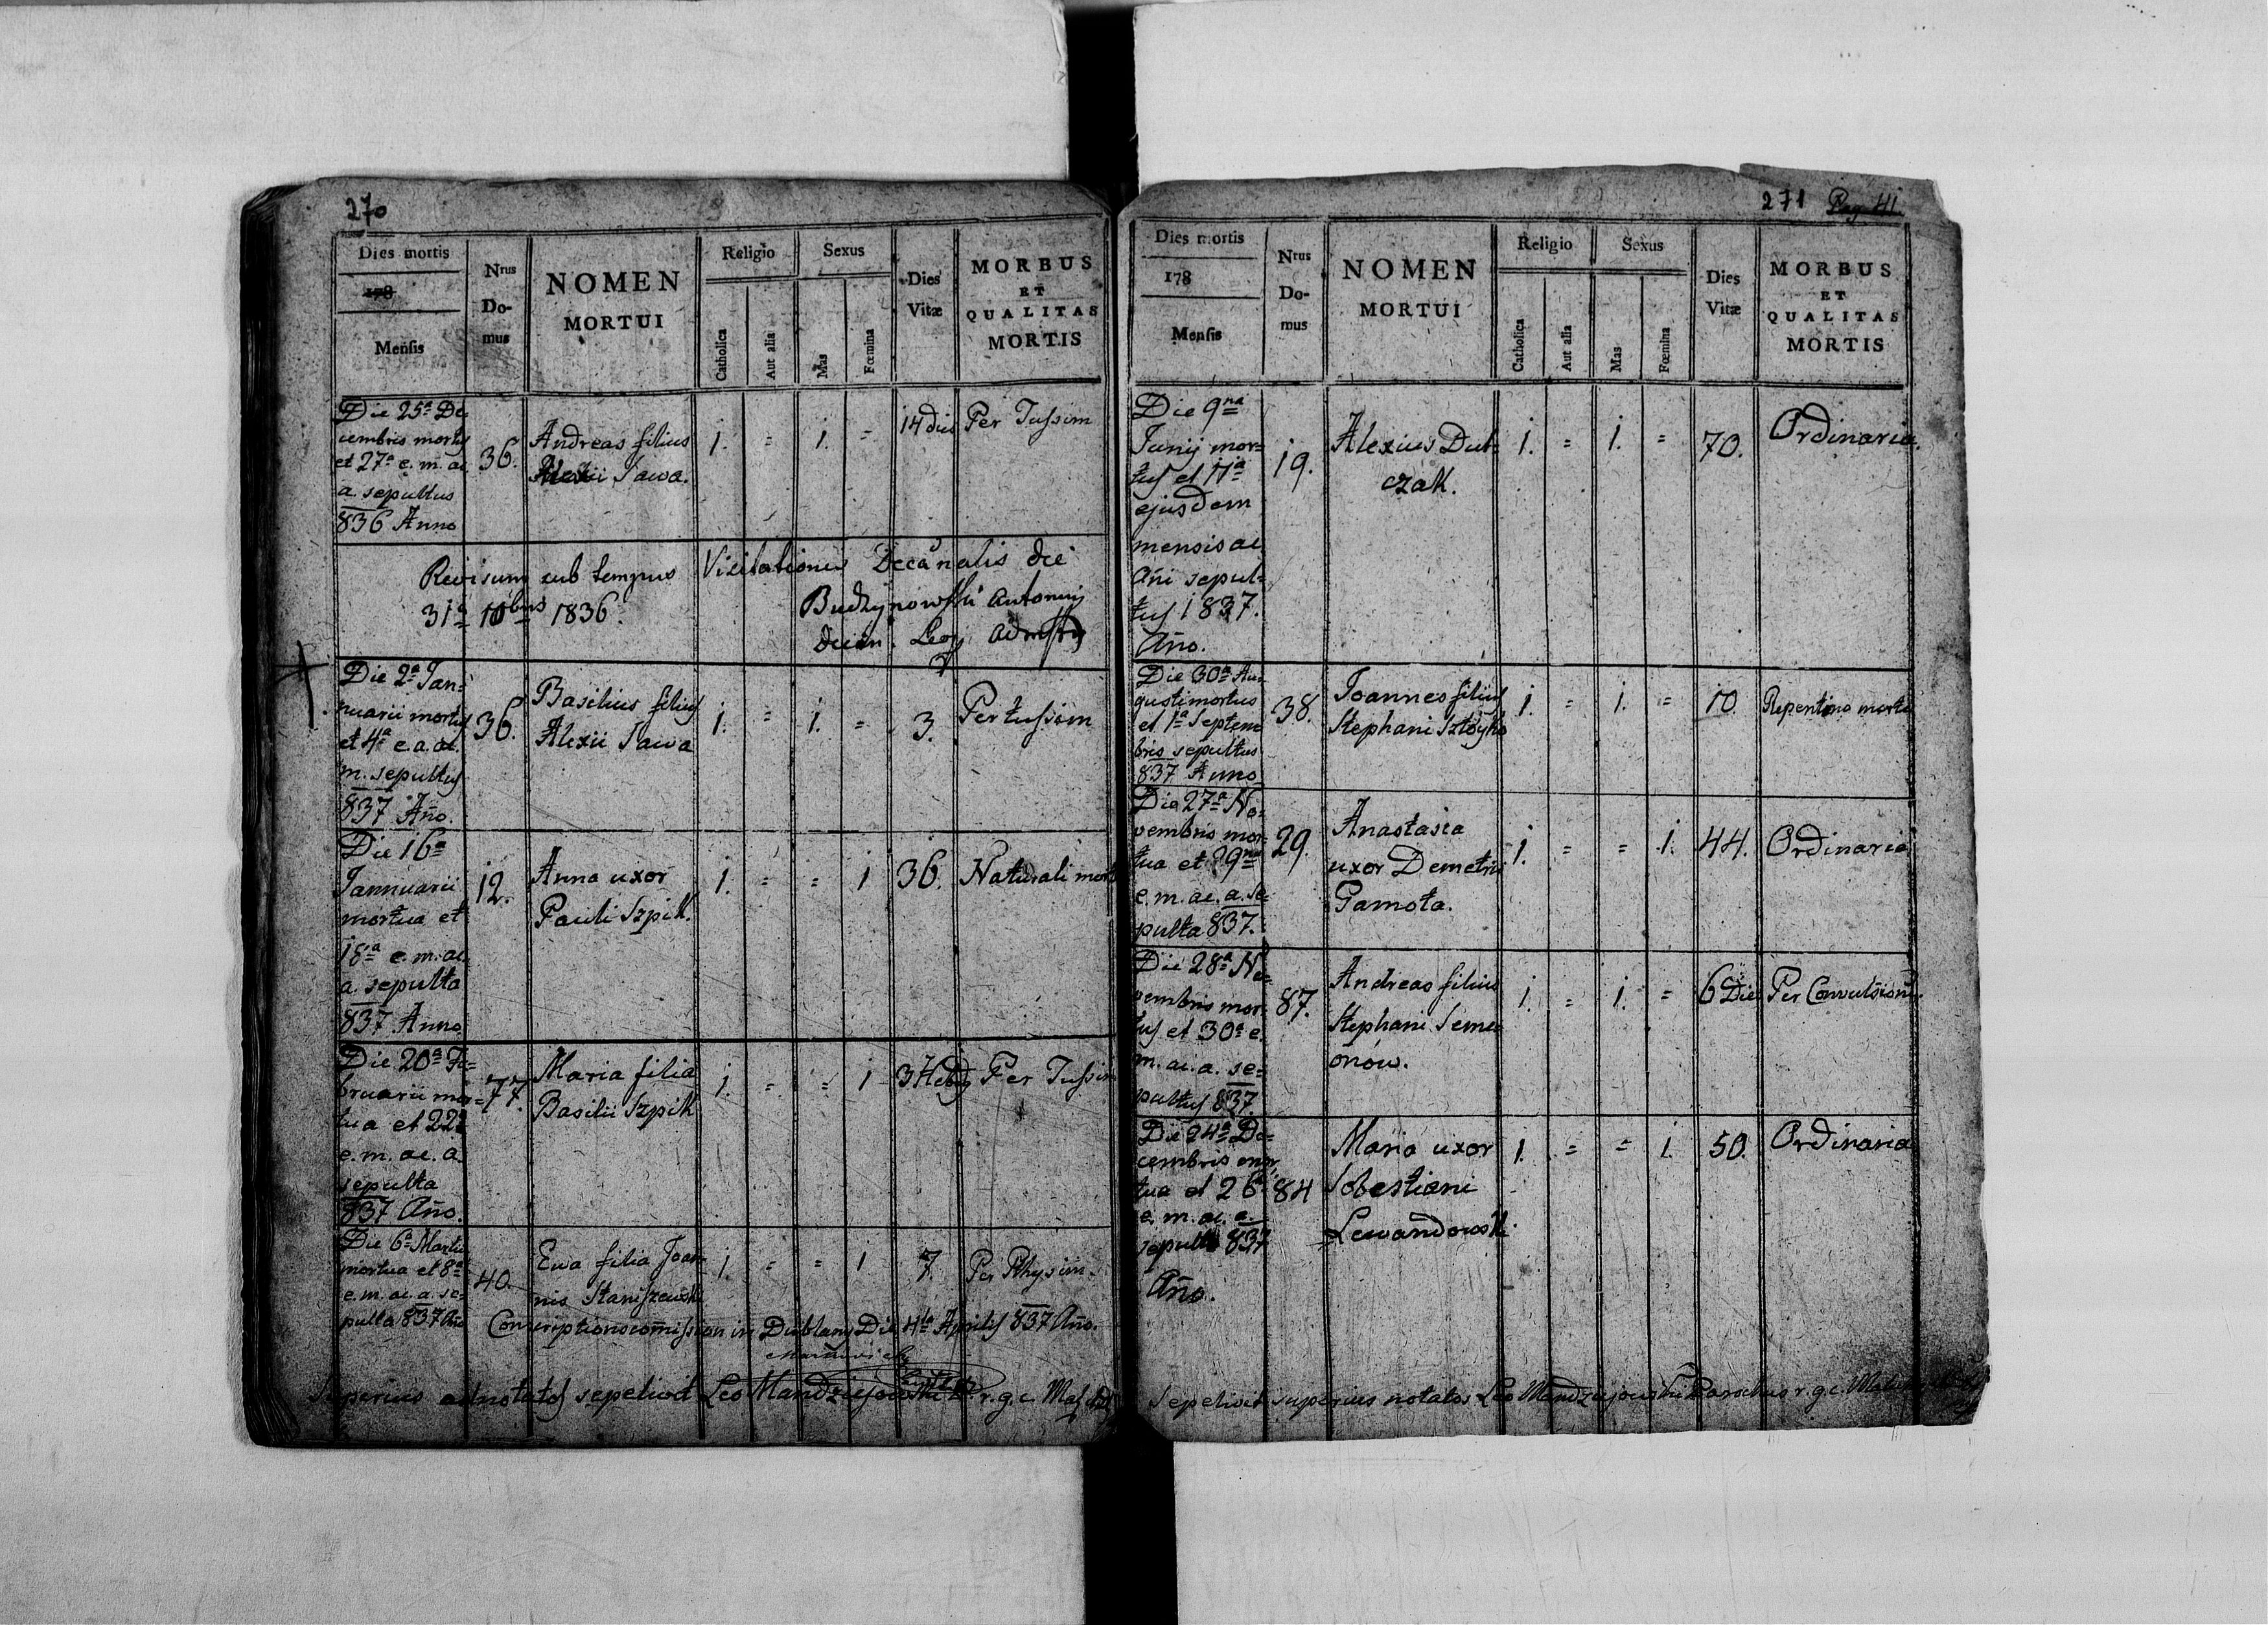 270
Dies mortis
178
Mensis
Nrus
Do-
mus
NOMEN
MORTUI
Religio
Catholica
Aut alia
Sexus
Mas
Fœmina
Dies
Vitæ
MORBUS
ET
QUALITAS
MORTIS
Die 25ª De
cembris mortus
et 27ª e. m. ac
a. sepultus
836 Anno
36.
Andreas filius
Alexii Sawa.
1. = 1. =
14 dies
Per Tussim
Revisum sub tempus Visitationis Decanalis die
31ª 10bris 1836.
Budzynowski Antonius
Die 2ª Jan=
nuarii mortus
et 4ª e. a. ac.
m. sepultus
837 Año.
36.
Basilius filius
Alexii Sawa
1. = 1. =
3.
Per tussim
Die 16ª
Jannuarii
mortua et
18ª e. m. ac.
a. sepulta
837 Anno
12.
Anna uxor
Pauli Szpik.
1. = = 1
36.
Naturali mort
Die 20ª Fe=
bruarii mor=
tua et 22ª
e. m. ac. a.
sepulta
837 Año.
77.
Maria filia
Basilii Szpik
1. = = 1
3 Hebd
Per Tussim
Die 6ª Martii
mortua et 8ª
e. m. ac. a. se=
pulta 837 Año
40.
Ewa filia Joan
nis Staniszewski
1. = = 1
7.
Per Phtysim
Conscriptionscommission in Dublany Die 4ta Aprilis 837 Año.
Superius adnotatos sepelivit Leo Mandziejowski P. r. g. c.
271 Pag 41.
Dies mortis
178
Mensis
Nrus
Do-
mus
NOMEN
MORTUI
Religio
Catholica
Aut alia
Sexus
Mas
Fœmina
Dies
Vitæ
MORBUS
ET
QUALITAS
MORTIS
Die 9na
Junij mor=
tus et 11ª
ejusdem
mensis ac
Añi sepul=
tus 1837.
Año.
19.
Alexius Dub
czak.
1. = 1. =
70.
Ordinaria.
Die 30ª Au
gusti mortus
et 1ª Septem
bris sepultus
837 Anno
38.
Joannes filius
Stephani Sztoyko
1. = 1. =
10.
Repentina morte
Die 27ª No=
vembris mor=
tua et 29na
e. m. ac. a. se=
pulta 837.
29.
Anastasia
uxor Demetrii
Gamota.
1. = = 1.
44.
Ordinaria
Die 28ª No=
vembris mor=
tus et 30ª e.
m. ac. a. se=
pultus 837.
87.
Andreas filius
Stephani Seme
onow.
1. = 1. =
6 Die
Per Convulsion.
Die 24ª De=
cembris mor
tua et 26ª
e. m. ac. a.
sepulta 837
Año.
84
Maria uxor
Sebestiani
Lewandowski.
1. = = 1.
50.
Ordinaria
Sepelivit superius notatos Leo Mandziejowski Parochus r. g. c.